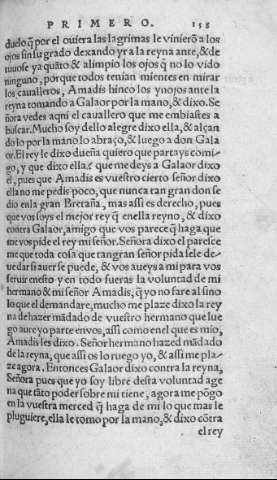 PRIMERO. 158
duelo q̃ por el ouiera las lagrimas le vinierõ a los
ojos sin su grado dexando yr a la reyna ante, & de
tuuose ya quãto & alimpio los ojos q̃ no lo vido
ninguno, porque todos tenian mientes en mirar
los caualleros, Amadis hinco los ynojos ante la
reyna tomando a Galaor por la mano, & dixo. Se
ñora vedes aqui el cauallero que me embiastes a
buscar. Mucho soy dello alegre dixo ella, & alçan
dolo por la mano lo abraço, & luego a don Gala
or. El rey le dixo dueña quiero que partays comi-
go, y que dixo ella? que me deys a Galaor dixo
el, pues que Amadis es vuestro cierto señor dixo
ella no me pedis poco, que nunca tan gran don se
dio en la gran Bretaña, mas assi es derecho, pues
que vos soys el mejor rey q̃ en ella reyno, & dixo
contra Galaor, amigo que vos parece q̃ haga que
me vos pide el rey mi señor. Señora dixo el paresce
me que toda cosa que tan gran señor pida se le de-
ue dar si auer se puede, & vos aueys a mi para vos
seruir en esto y en todo fueras la voluntad de mi
hermano & mi señor Amadis, q̃ yo no fare al sino
lo que el demandare, mucho me plaze dixo la rey
na de hazer mãdado de vuestro hermano que lue
go aure yo parte en vos, assi como en el que es mio,
Amadis les dixo. Señor hermano hazed mãdado
de la reyna, que assi os lo ruego yo, & assi me pla-
ze agora. Entonces Galaor dixo contra la reyna,
Señora pues que yo soy libre desta voluntad age
na que tãto poder sobre mi tiene, agora me põgo
en la vuestra merced q̃ haga de mi lo que mas le
pluguiere, ella le tomo por la mano, & dixo cõtra
el rey